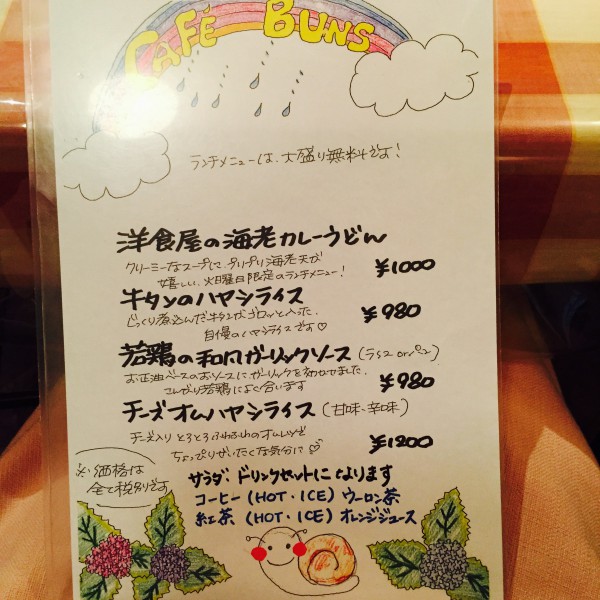 CAFÉ BUNS
ランチメニューは、大盛り無料です!
洋食屋の海老カレーうどん
クリーミーなスープに、プリプリ海老天が
嬉しい、火曜日限定のランチメニュー!
¥1000
牛タンのハヤシライス
じっくり煮込んだ牛タンがゴロッと入った、
自慢のハヤシライスです♡
¥980
若鶏の和風ガーリックソース(ライス or パン)
お正油ベースのおソースにガーリックを効かせました。
こんがり若鶏によく合います
¥980
チーズオムハヤシライス(甘味、辛味)
チーズ入りとろとろふわふわのオムレツで
ちょっぴりぜいたくな気分に♡
¥1200
※価格は
全て税別です
サラダ、ドリンクセットになります
コーヒー(HOT・ICE) ウーロン茶
紅茶(HOT・ICE) オレンジジュース